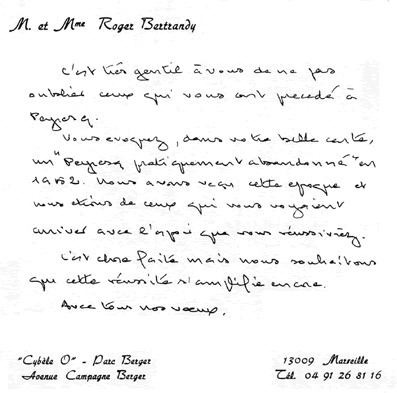 M. et Mme Roger Bertrandy
C'est très gentil à vous de ne pas
oublier ceux qui vous ont precedé à
Peyresq.
Vous evoquez, dans votre belle carte,
un "Peyresq pratiquement abandonné" en
1952. Nous avons vecu cette epoque et
nous etions de ceux qui vous voyaient
arriver avec l'espoir que vous réussiriez.
C'est chose faite mais nous souhaitons
que cette réussite s'amplifie encore.
Avec tous nos voeux.
"Cybèle O" - Parc Berger
Avenue Campagne Berger
13009 Marseille
Tél. 04 91 26 81 16